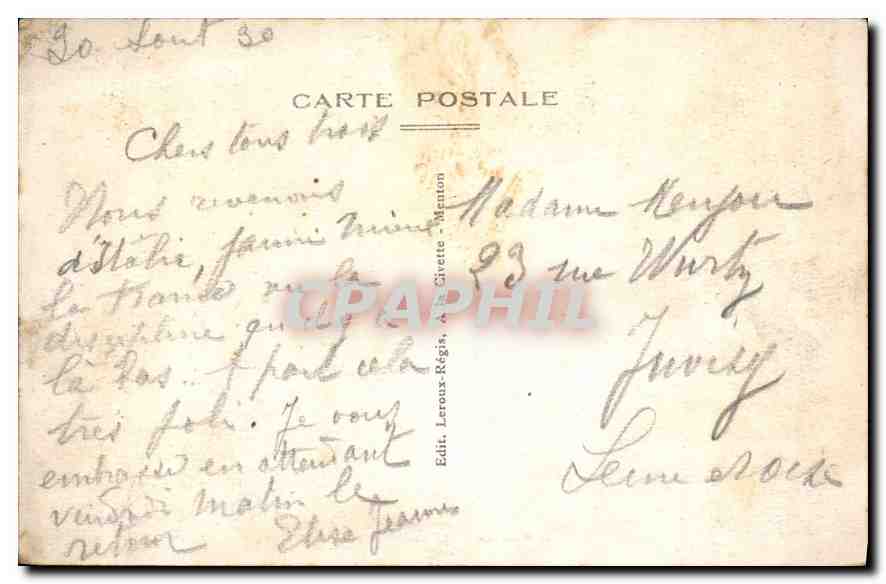 20 Aout 30
CARTE POSTALE
Chers tous trois
Nous revenons
d'Italie, j'aime mieux
la France vu la
discipline qu'il y a
là bas.. A part cela
très joli. Je vous
embrasse en attendant
vendredi matin le
retour Elise Jeanne
Edit. Leroux-Régis, A la Civette - Menton
Madame
23 rue Wurtz
Juvisy
Seine et Oise
CPAPHIL